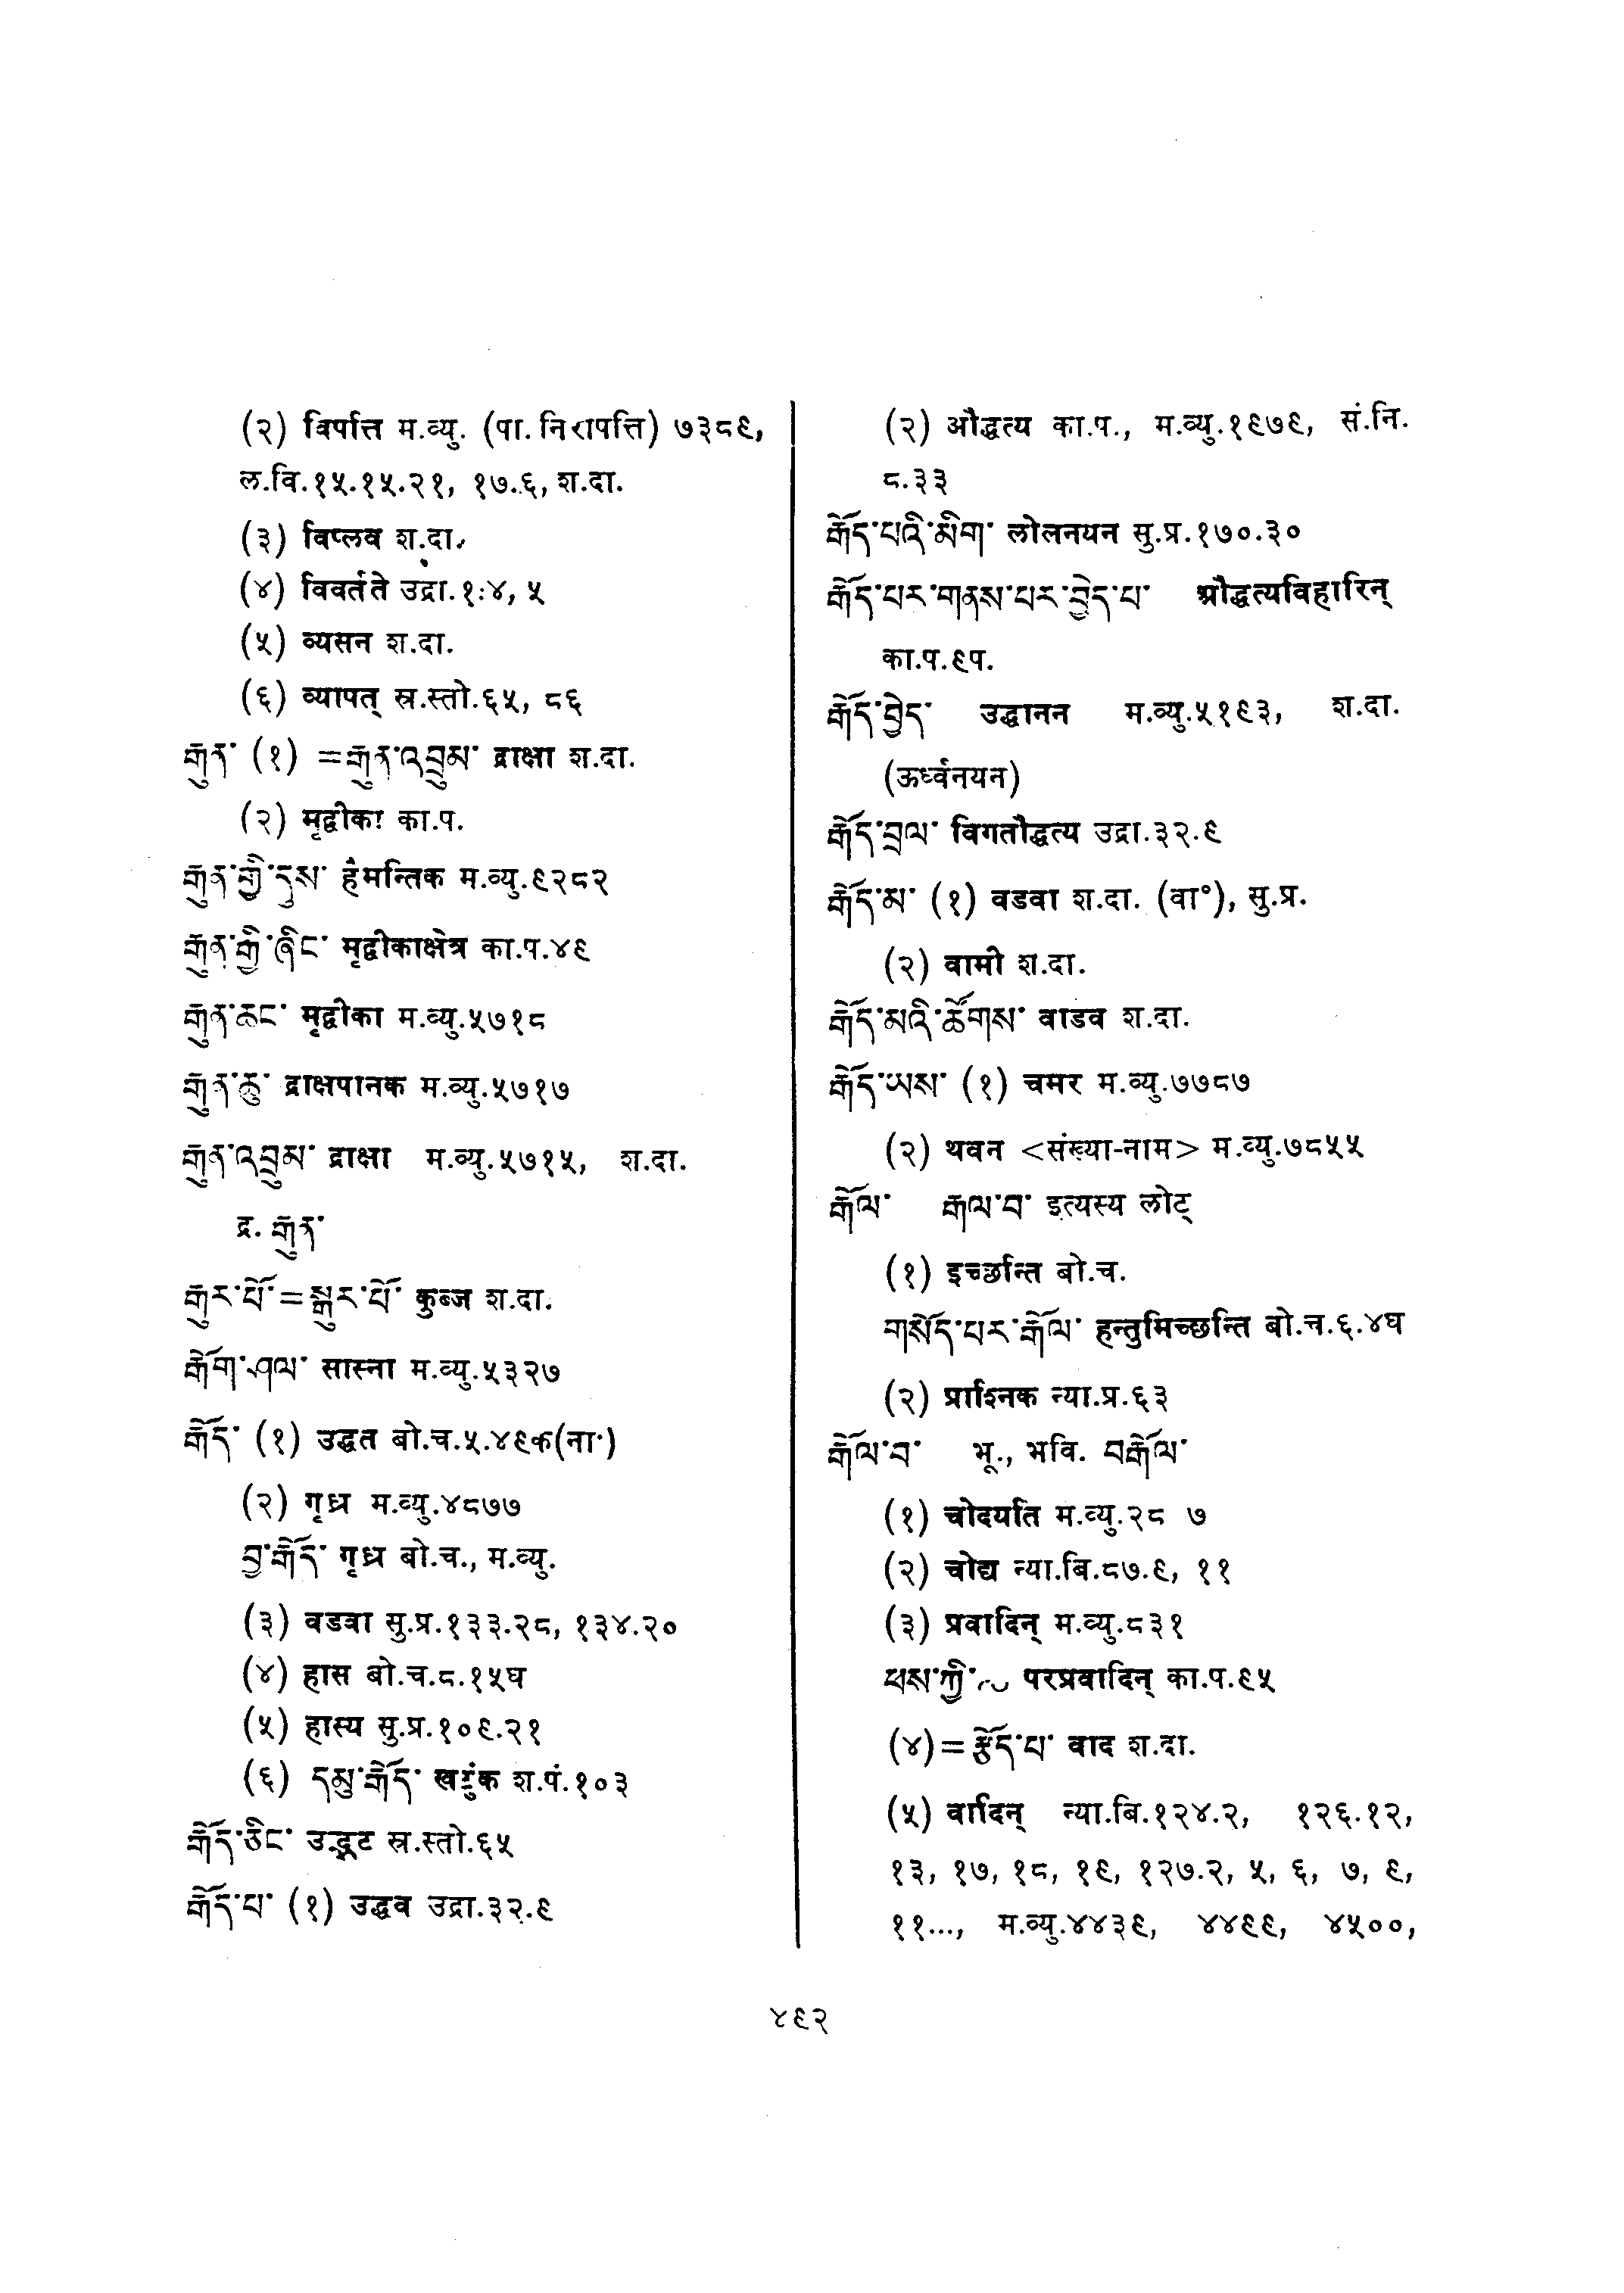 (२) विपत्ति म.व्यु. (पा. निरापत्ति) ७३८९,
ल.वि.१५.१५.२१, १७.६, श.दा.
(३) विप्लव श.दा.
(४) विवर्तते उद्रा.१ः४, ५
(५) व्यसन श.दा.
(६) व्यापत् स्र.स्तो.६५, ८६
རྒུན་ (१) =རྒུན་འབྲུམ་ द्राक्षा श.दा.
(२) मृद्वीका का.प.
རྒུན་གྱི་དུས་ हैमन्तिक म.व्यु.९२८२
རྒུན་གྱི་ཞིང་ मृद्वीकाक्षेत्र का.प.४९
རྒུན་ཆང་ मृद्वीका म.व्यु.५७१८
རྒུན་ཆུ་ द्राक्षपानक म.व्यु.५७१७
རྒུན་འབྲུམ་ द्राक्षा म.व्यु.५७१५, श.दा.
द्र. རྒུན་
རྒུར་པོ་=སྒུར་པོ་ कुब्ज श.दा.
རྒོག་ཤལ་ सास्ना म.व्यु.५३२७
རྒོད་ (१) उद्धत बो.च.५.४९क(ना॰)
(२) गृध्र म.व्यु.४८७७
བྱ་རྒོད་ गृध्र बो.च., म.व्यु.
(३) वडवा सु.प्र.१३३.२८, १३४.२०
(४) हास बो.च.८.१५घ
(५) हास्य सु.प्र.१०९.२१
(६) དམུ་རྒོད་ खटुंक श.पं.१०३
རྒོད་ཅིང་ उद्भट स्र.स्तो.६५
རྒོད་པ་ (१) उद्धव उद्रा.३२.९
(२) औद्धत्य का.प., म.व्यु.१९७९, सं.नि.
८.३३
རྒོད་པའི་མིག་ लोलनयन सु.प्र.१७०.३०
རྒོད་པར་གནས་པར་བྱེད་པ་ औद्धत्यविहारिन्
का.प.९प.
རྒོད་བྱེད་ उद्धानन म.व्यु.५१९३, श.दा.
(ऊर्ध्वनयन)
རྒོད་བྲལ་ विगतौद्धत्य उद्रा.३२.९
རྒོད་མ་ (१) वडवा श.दा. (वा°), सु.प्र.
(२) वामी श.दा.
རྒོད་མའི་ཚོགས་ वाडव श.दा.
རྒོད་ཡས་ (१) चमर म.व्यु.७७८७
(२) थवन <संख्या-नाम> म.व्यु.७८५५
རྒོལ་ རྒལ་བ་ इत्यस्य लोट्
(१) इच्छन्ति बो.च.
གསོད་པར་རྒོལ་ हन्तुमिच्छन्ति बो.च.६.४घ
(२) प्राश्निक न्या.प्र.६३
རྒོལ་བ་ भू., भवि. བརྒོལ་
(१) चोदयति म.व्यु.२८ ७
(२) चोद्य न्या.बि.८७.९, ११
(३) प्रवादिन् म.व्यु.८३१
ཕས་ཀྱི་~ परप्रवादिन् का.प.९५
(४)=རྩོད་པ་ वाद श.दा.
(५) वादिन् न्या.बि.१२४.२, १२६.१२,
१३, १७, १८, १९, १२७.२, ५, ६, ७, ९,
११..., म.व्यु.४४३९, ४४९९, ४५००,
४९२